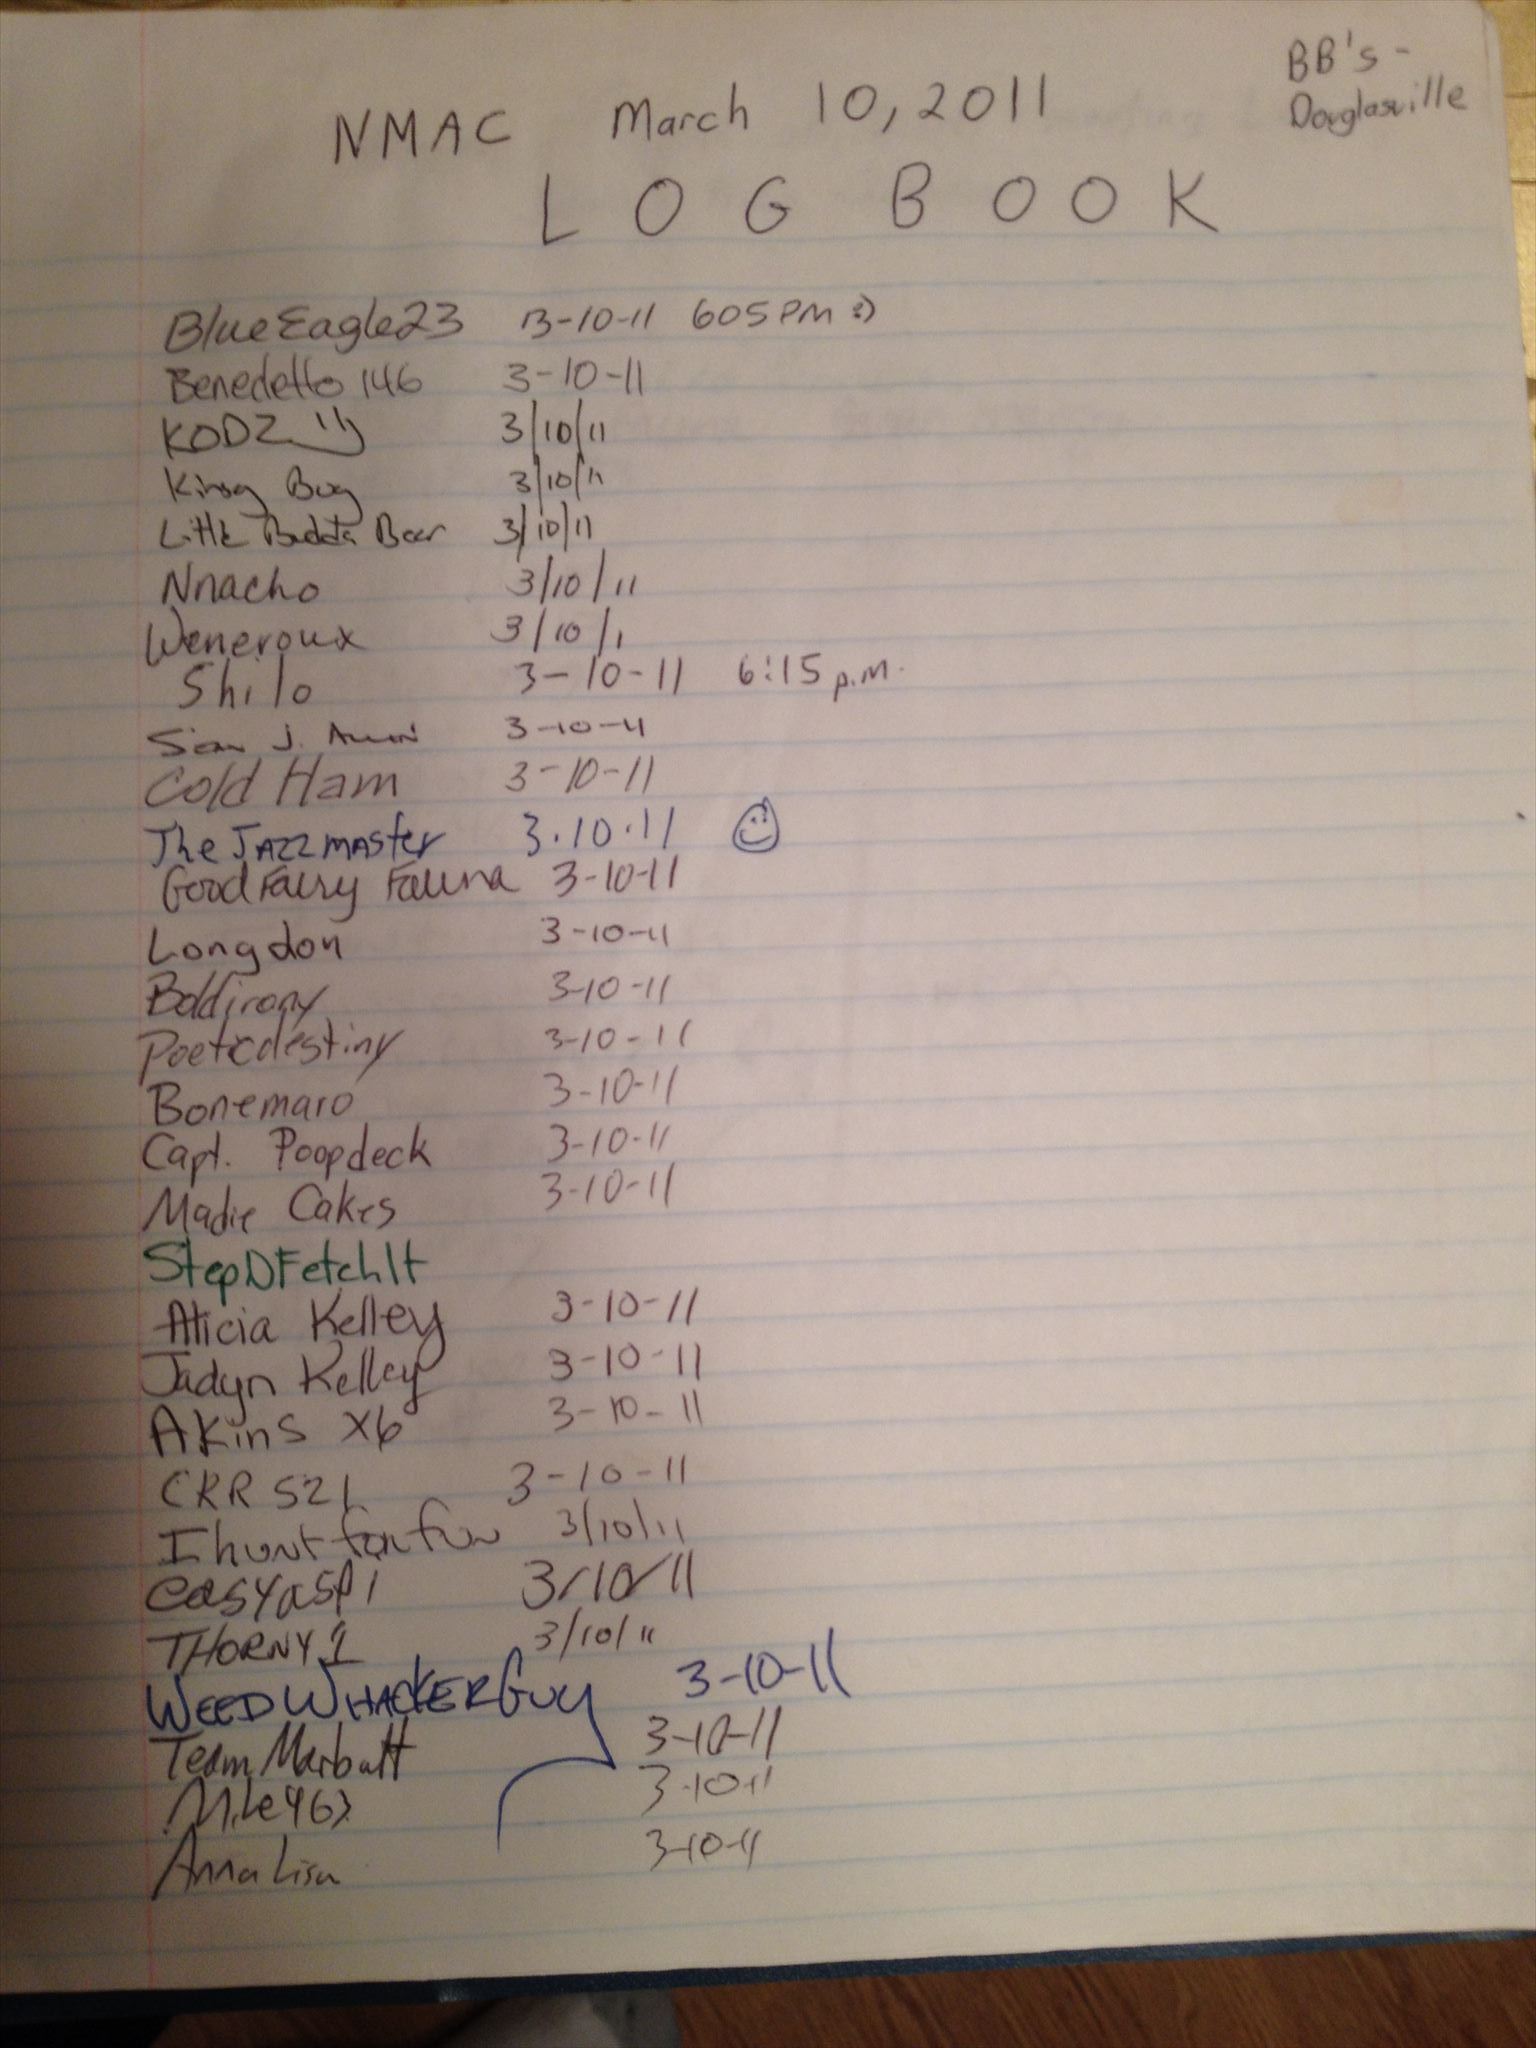 BB's -
Douglasville
NMAC March 10, 2011
LOG BOOK
BlueEagle23 3-10-11 605 PM :)
Benedetto 146 3-10-11
KODZ 3/10/11
Kinsy Bug 3/10/11
Little Budda Bear 3/10/11
Nnacho 3/10/11
Weneroux 3/10/1
Shilo 3-10-11 6:15 p.m.
Sean J. 3-10-11
Cold Ham 3-10-11
The JAZZMASTER 3.10.11
GoodFairy Fauna 3-10-11
Longdon 3-10-11
Boldirony 3-10-11
Poeticdestiny 3-10-11
Bonemaro 3-10-11
Capt. Poopdeck 3-10-11
Madie Cakes 3-10-11
StepNFetchIt
Alicia Kelley 3-10-11
Jadyn Kelley 3-10-11
Akins X6 3-10-11
CKR 521 3-10-11
I hunt for fun 3/10/11
easyaspi 3/10/11
THORNY1 3/10/11
WEEDWHACKERGuy 3-10-11
Team Marbutt 3-10-11
3-10-11
Anna Lisa 3-10-11